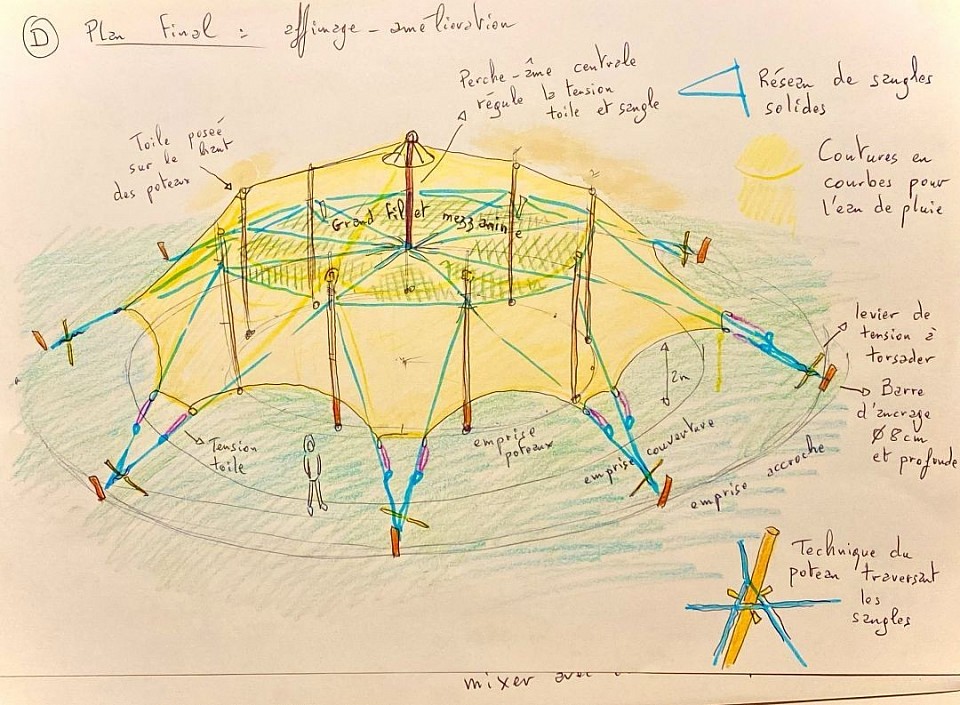 D Plan Final : affinage - amélioration
Perche-âme centrale
régule la tension
toile et sangle
Réseau de sangles
solides
Toile posée
sur le haut
des poteaux
Coutures en
courbes pour
l'eau de pluie
Grand filet mezzanine
levier de
tension à
torsader
2m
Barre
d'ancrage
Ø 8cm
et profonde
Tension
toile
emprise
poteaux
emprise couverture
emprise accroche
Technique du
poteau traversant
les
sangles
mixer avec